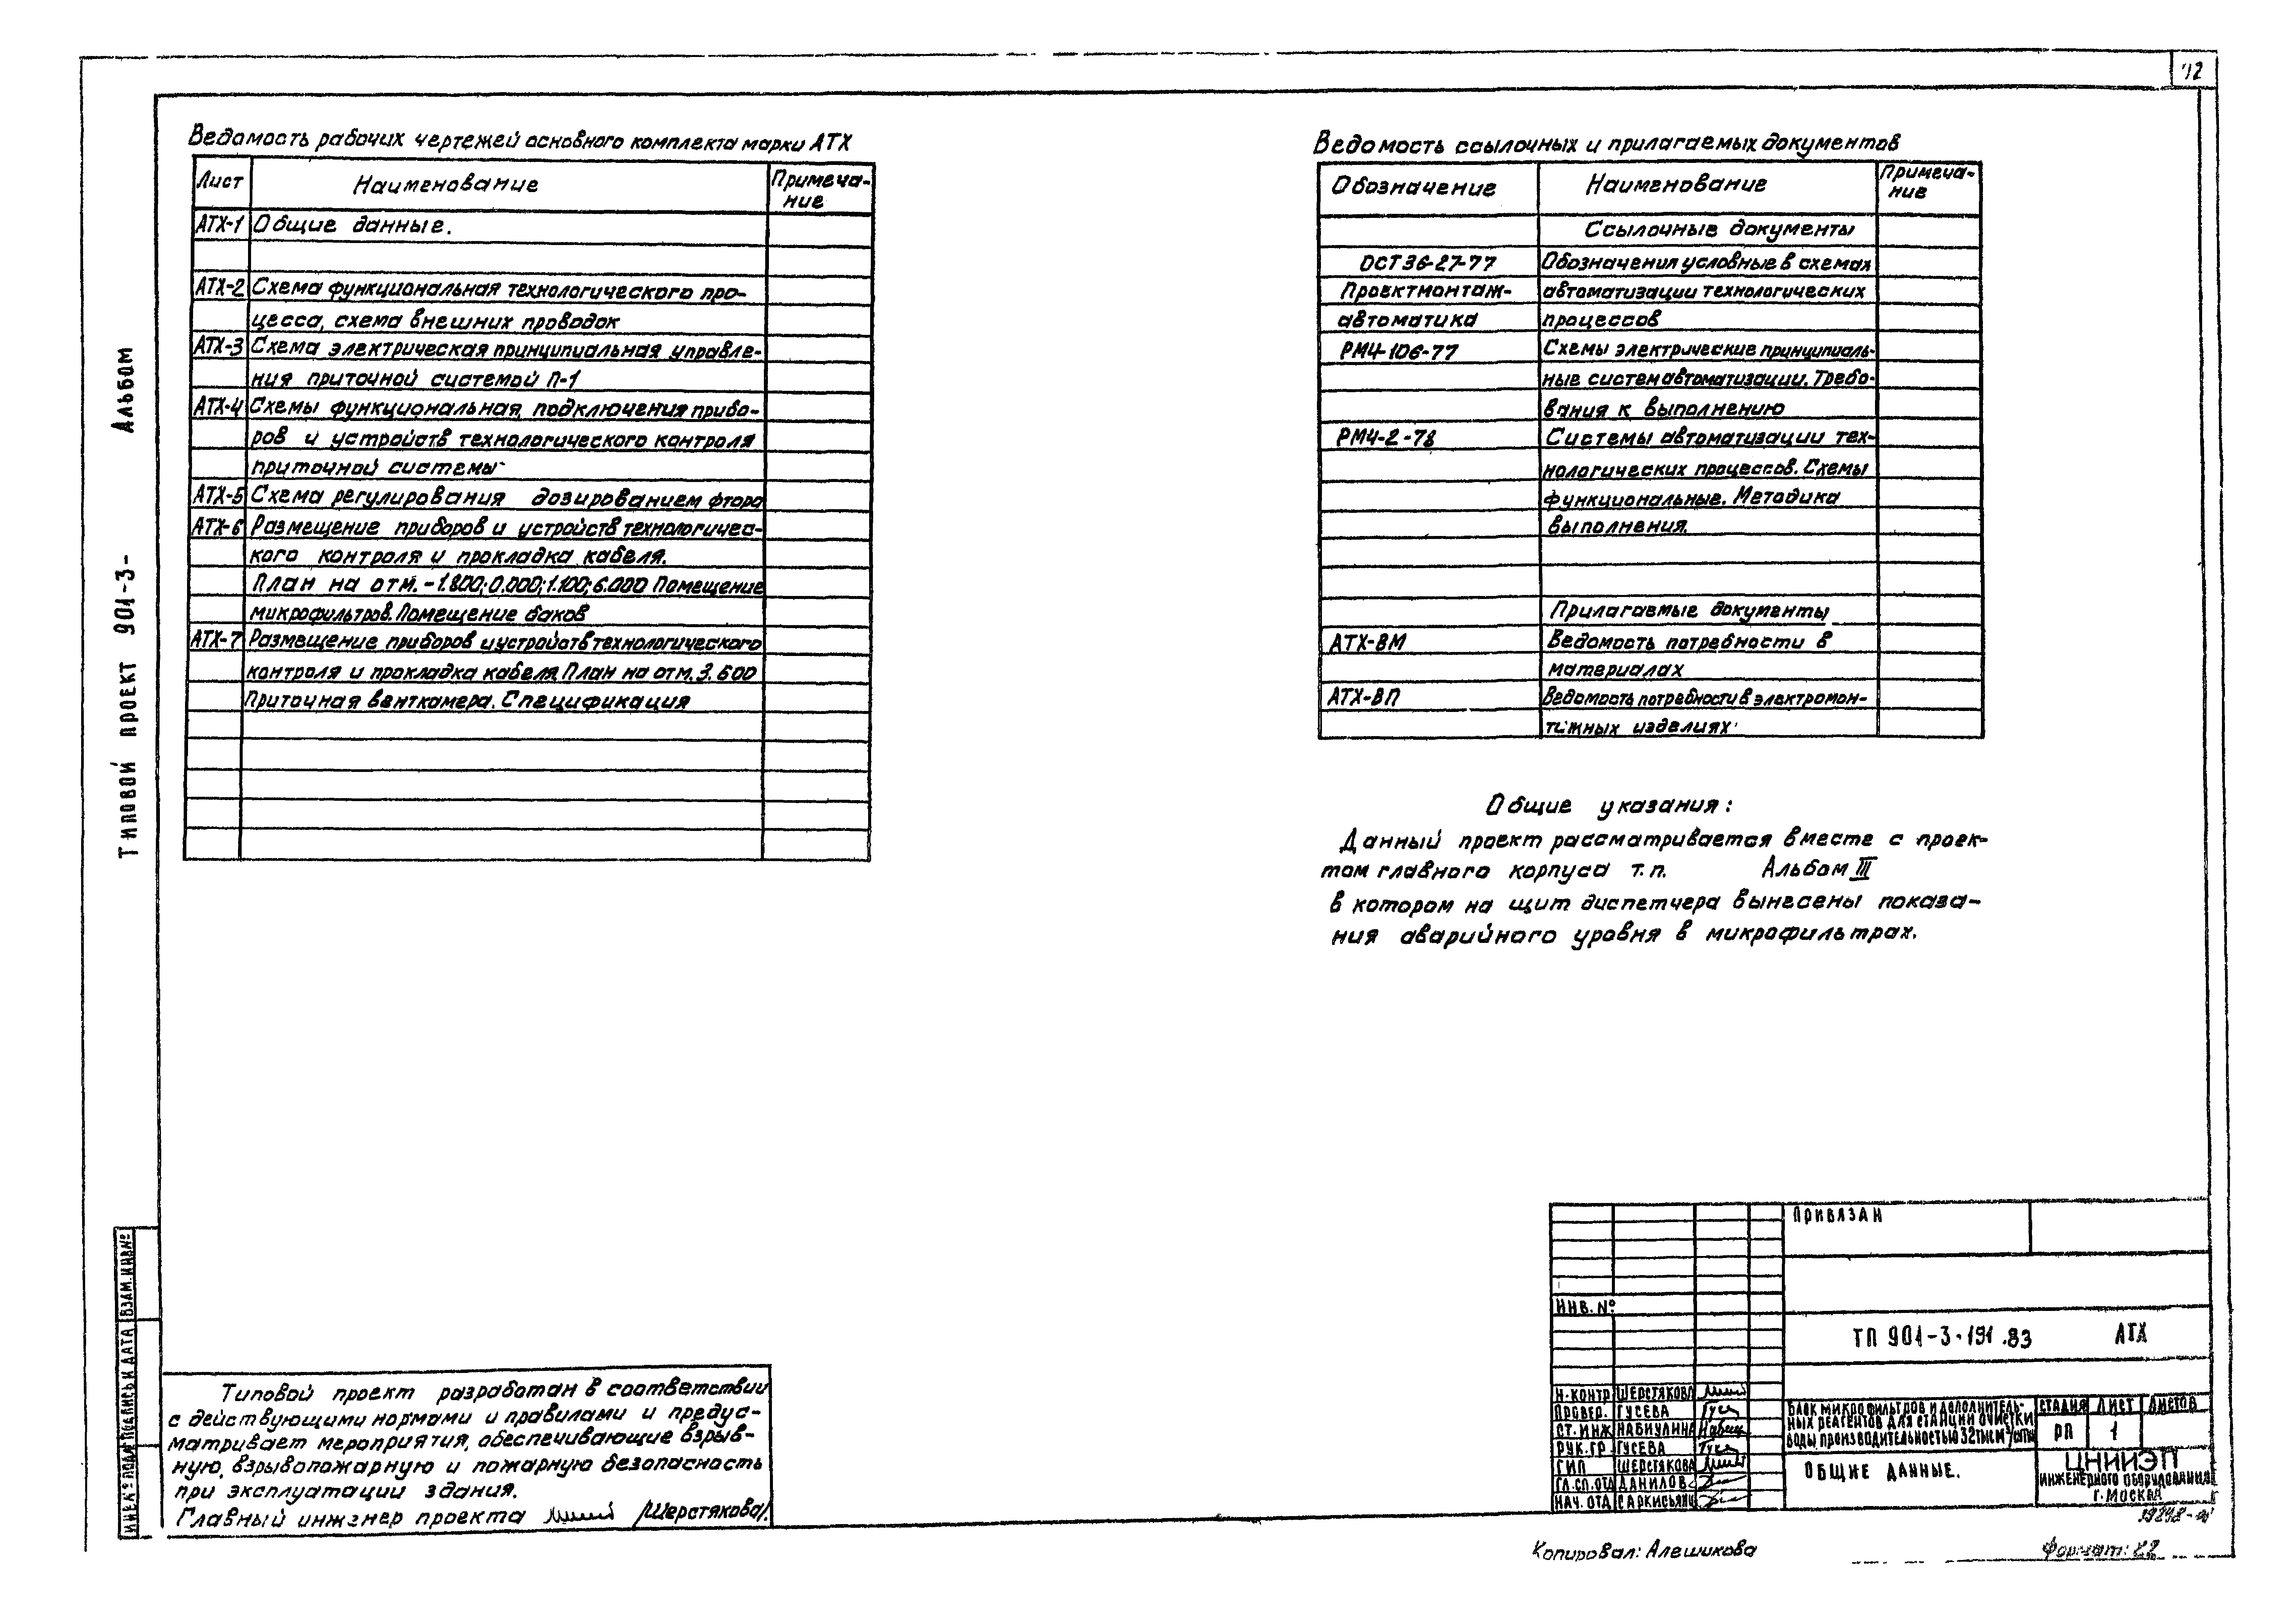 12
Ведомость рабочих чертежей основного комплекта марки АТХ
Лист Наименование Примеча-
ние
АТХ-1 Общие данные.
АТХ-2 Схема функциональная технологического про-
цесса, схема внешних проводок
АТХ-3 Схема электрическая принципиальная управле-
ния приточной системой П-1
АТХ-4 Схемы функциональная, подключения прибо-
ров и устройств технологического контроля
приточной системы
АТХ-5 Схема регулирования дозированием фтора
АТХ-6 Размещение приборов и устройств технологичес-
кого контроля и прокладка кабеля.
План на отм. -1.800; 0.000; 1.100; 6.000 Помещение
микрофильтров. Помещение баков
АТХ-7 Размещение приборов и устройств технологического
контроля и прокладка кабеля. План на отм. 3.600
Приточная венткамера. Спецификация
Ведомость ссылочных и прилагаемых документов
Обозначение Наименование Примеча-
ние
Ссылочные документы
ОСТ 36-27-77 Обозначения условные в схемах
Проектмонтаж- автоматизации технологических
автоматика процессов
РМ4-106-77 Схемы электрические принципиаль-
ные систем автоматизации. Требо-
вания к выполнению
РМ4-2-78 Системы автоматизации тех-
нологических процессов. Схемы
функциональные. Методика
выполнения.
Прилагаемые документы
АТХ-ВМ Ведомость потребности в
материалах
АТХ-ВП Ведомость потребности в электромон-
тажных изделиях
Общие указания:
Данный проект рассматривается вместе с проек-
том главного корпуса т.п. Альбом III
в котором на щит диспетчера вынесены показа-
ния аварийного уровня в микрофильтрах.
Альбом
Типовой проект 901-3-
ИНВ.№ ПОДЛ. ПОДПИСЬ И ДАТА ВЗАМ.ИНВ№
Типовой проект разработан в соответствии
с действующими нормами и правилами и предус-
матривает мероприятия, обеспечивающие взрыв-
ную, взрывопожарную и пожарную безопасность
при эксплуатации здания.
Главный инженер проекта /Шерстякова/.
ПРИВЯЗАН
ИНВ. №
ТП 901-3-191.83 АТХ
Н.КОНТР ШЕРСТЯКОВА
ПРОВЕР. ГУСЕВА
СТ.ИНЖ НАБИУЛИНА
РУК.ГР ГУСЕВА
ГИП ШЕРСТЯКОВА
ГЛ.СП.ОТД ДАНИЛОВ
НАЧ.ОТД САРКИСЬЯНЦ
БЛОК МИКРОФИЛЬТРОВ И ДОПОЛНИТЕЛЬ-
НЫХ РЕАГЕНТОВ ДЛЯ СТАНЦИИ ОЧИСТКИ
ВОДЫ ПРОИЗВОДИТЕЛЬНОСТЬЮ 32 ТЫС М³/СУТКИ
СТАДИЯ ЛИСТ ЛИСТОВ
РП 1
ОБЩИЕ ДАННЫЕ.
ЦНИИЭП
ИНЖЕНЕРНОГО ОБОРУДОВАНИЯ
Г. МОСКВА
Копировал: Алешикова
Формат: 22